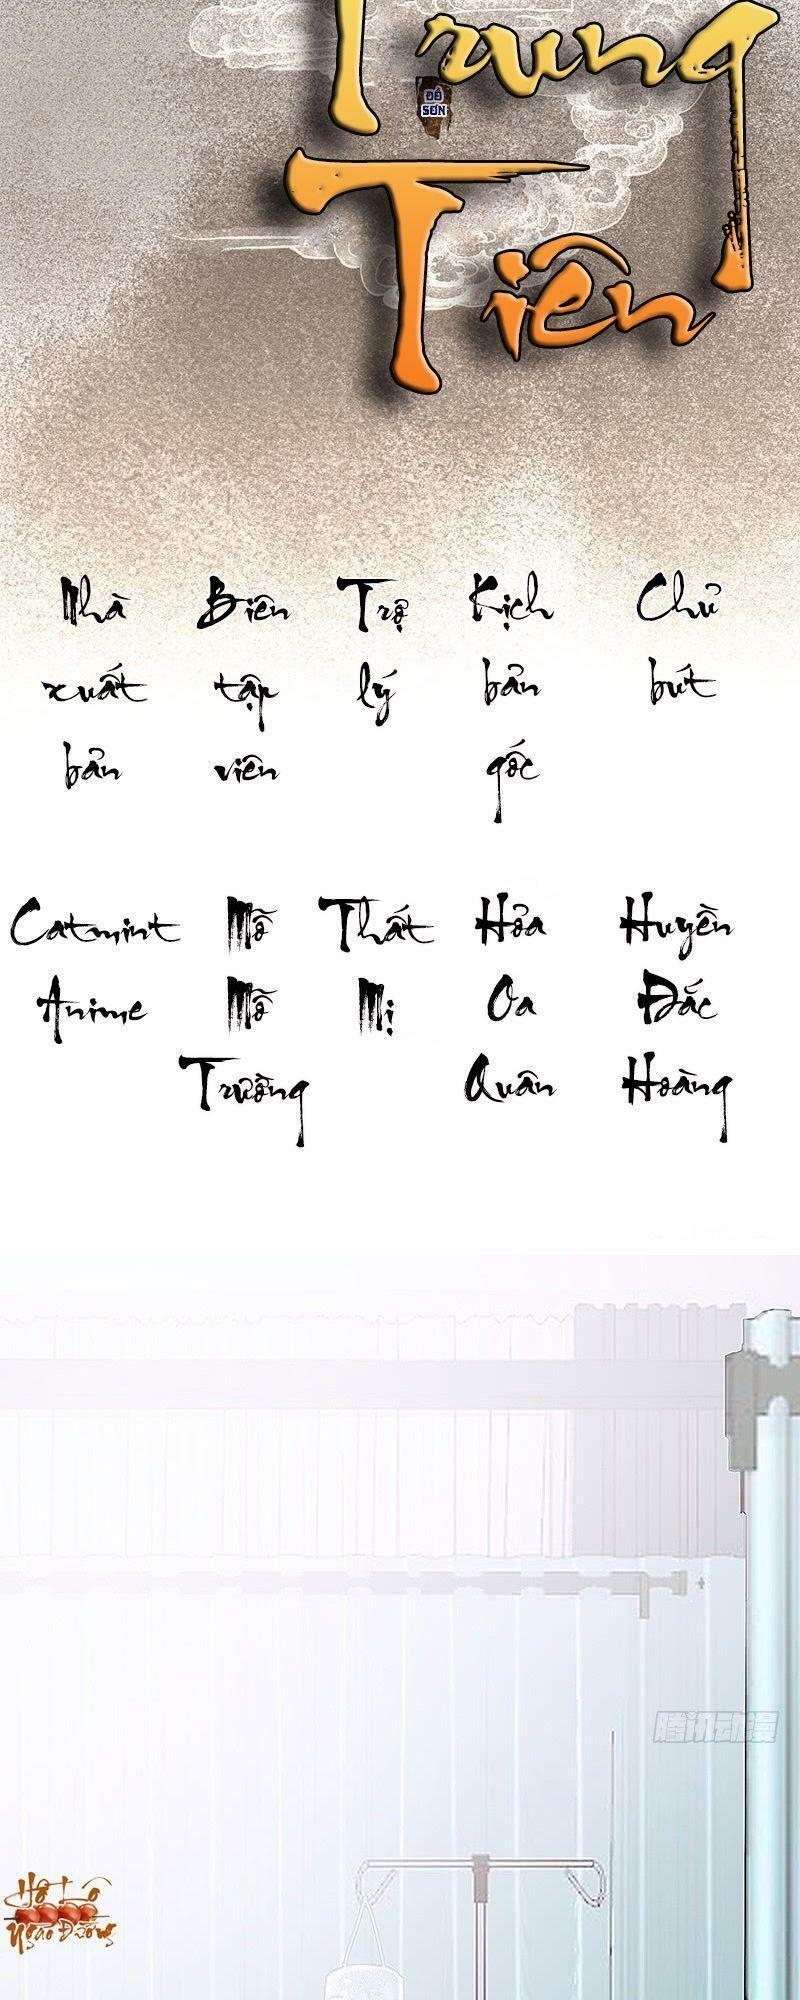 Trung
ĐỒ
SƠN
Tiên
Nhà xuất bản
Biên tập viên
Trợ lý
Kịch bản gốc
Chủ bút
Catmint Anime
Mỗ Mỗ Trường
Thất Mị
Hỏa Oa Quân
Huyền Đắc Hoàng
腾讯动漫
Hồ Lô
Ngào Đường